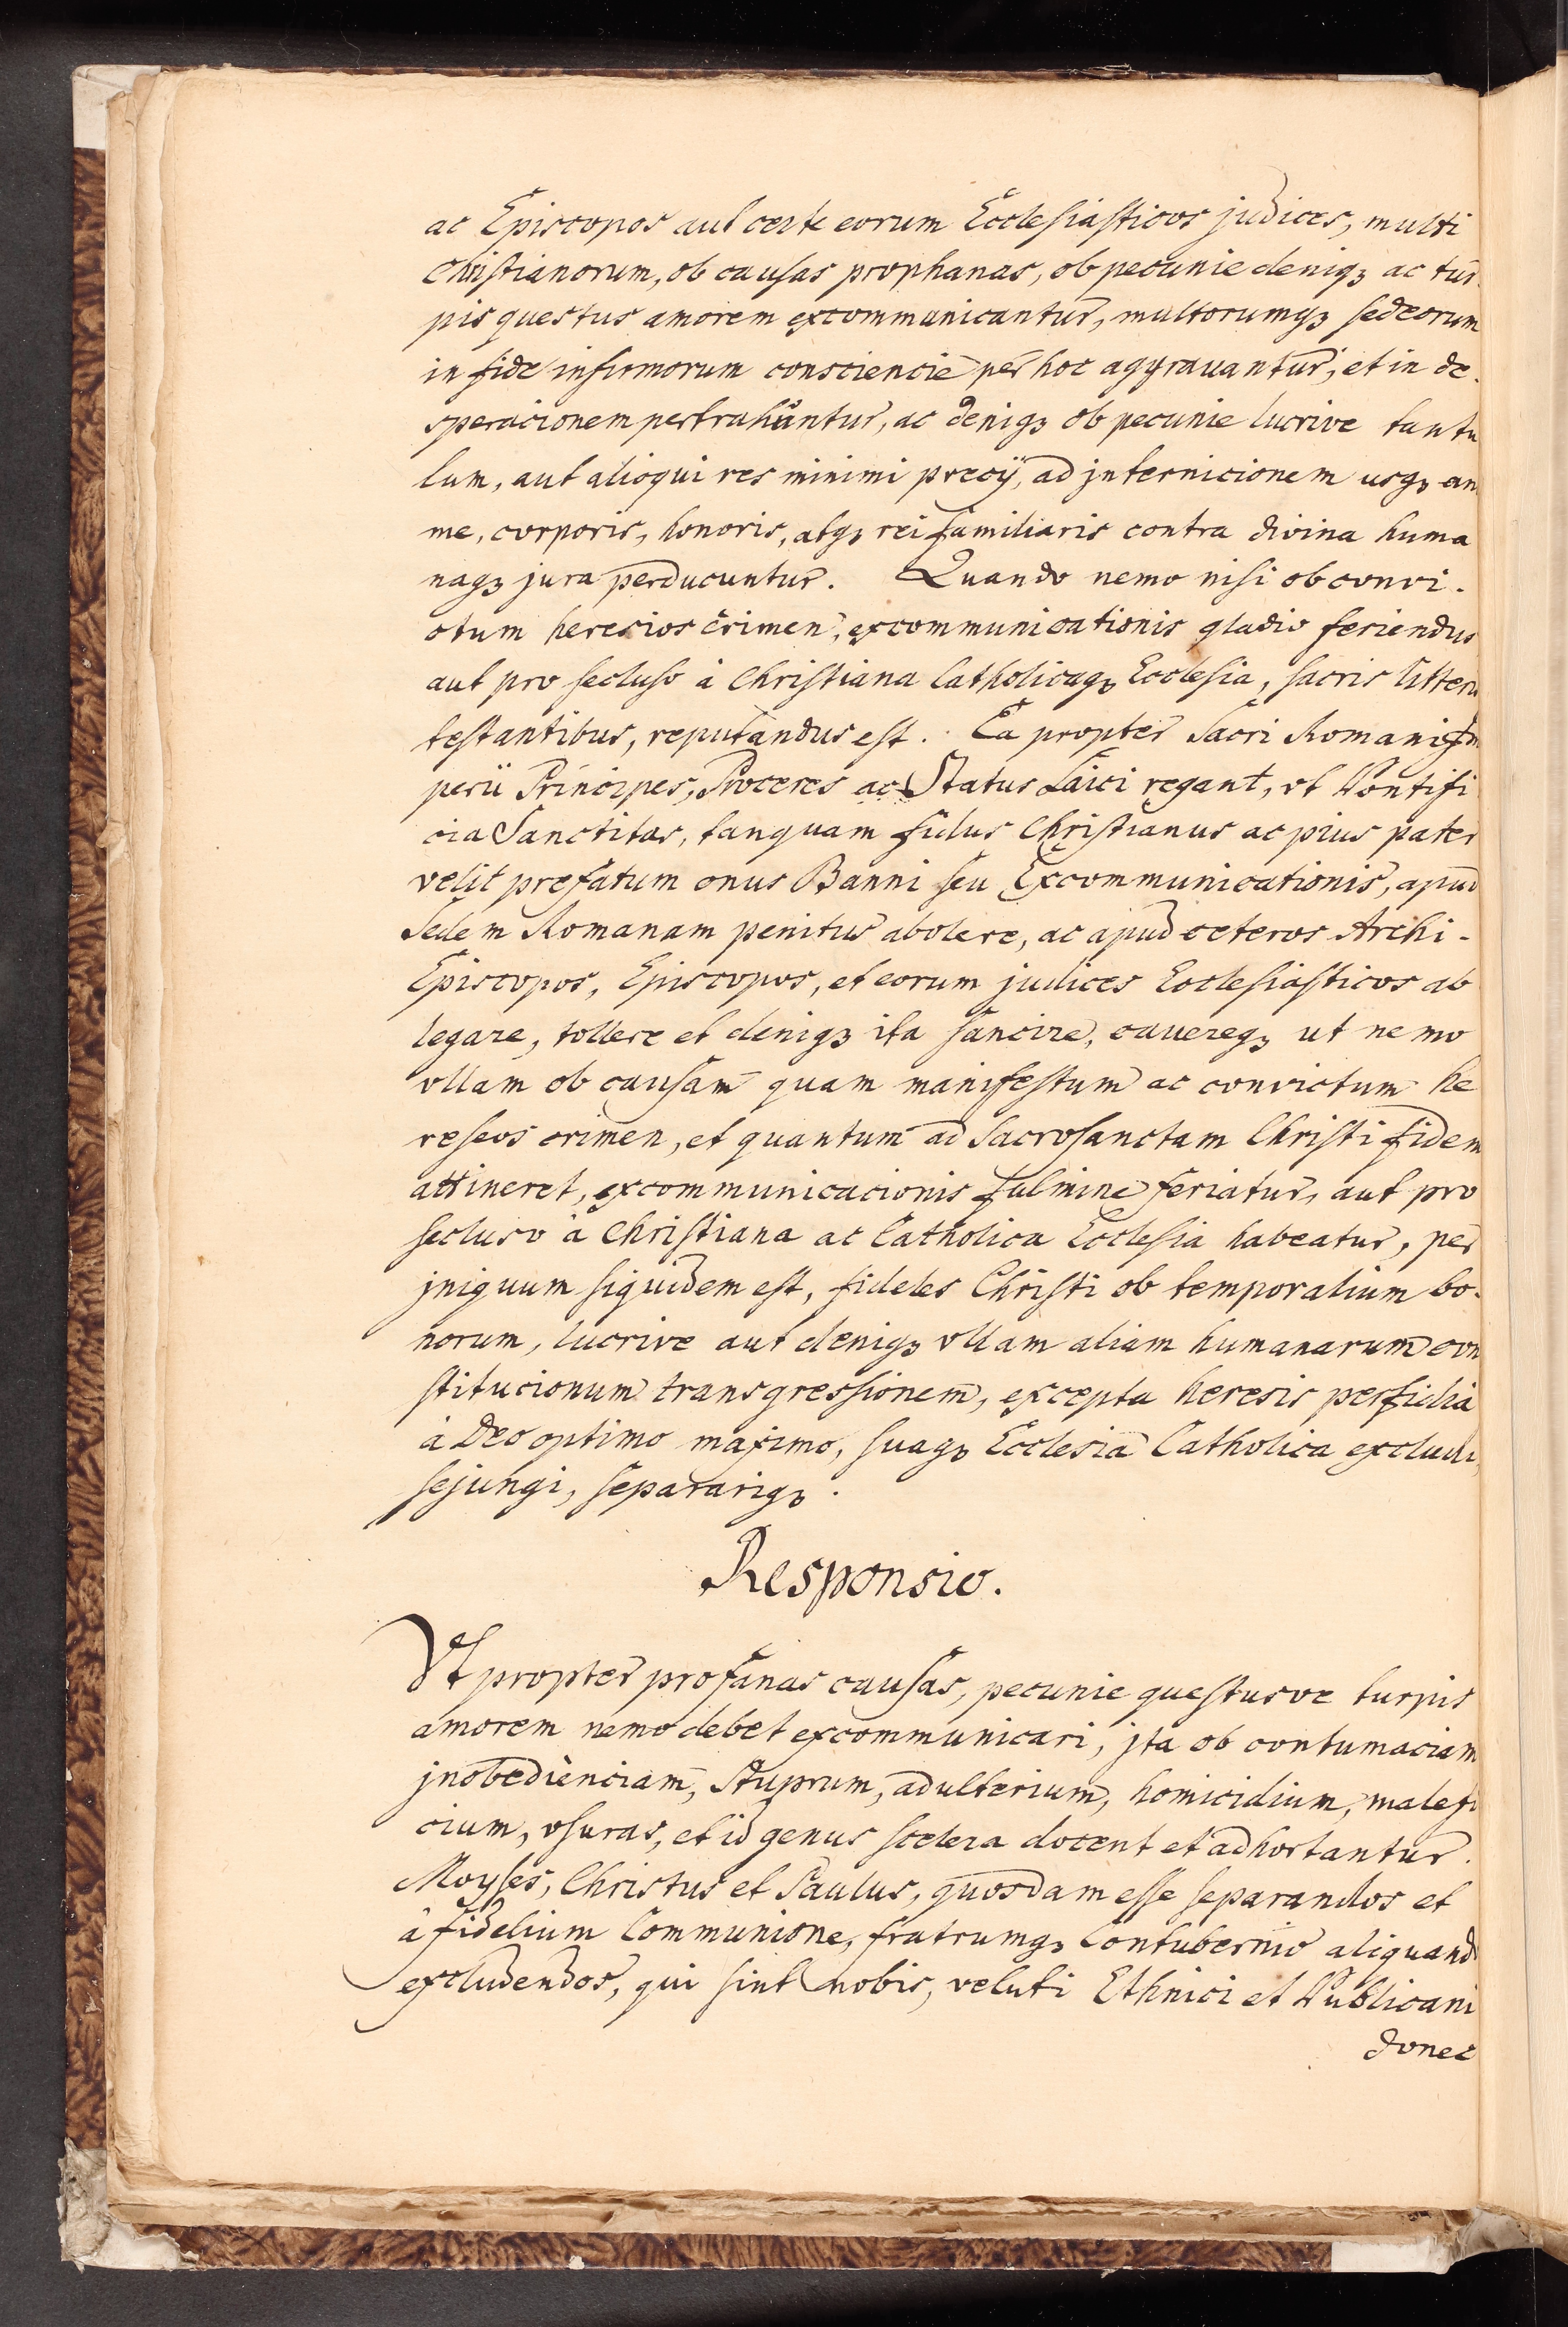 ac Episcopos aut certe eorum Ecclesiasticos judices, multi
Christianorum, ob causas prophanas, ob pecunie deniqꝫ ac tur-
pis questus amorem excommunicantur, multorumqꝫ sed eorum
in fide infirmorum consciencie per hoc aggrauantur, et in de-
speracionem pertrahuntur, ac deniqꝫ ob pecunie lucrive tantu
lum, aut alioqui res minimi precij, ad jnternicionem usqꝫ ani
me, corporis, honoris, atqꝫ rei familiaris contra divina huma
naqꝫ jura perducuntur. Quando nemo nisi ob convi-
ctum heresios crimen, excommunicationis gladio feriendus
aut pro secluso à Christiana Catholicaqꝫ Ecclesia, sacris litteris
testantibus, reputandus est. Ea propter Sacri Romani Im
perii Principes, Proceres ac Status Laici rogant, vt Pontifi
cia Sanctitas, tanquam fidus Christianus ac pius pater
velit prefatum onus Banni seu Excommunicationis, apud
Sedem Romanam penitus abolere, ac apud ceteros Archi-
Episcopos, Episcopos, et eorum judices Ecclesiasticos ab
legare, tollere et deniqꝫ ita sancire, cavereqꝫ ut nemo
vllam ob causam quam manifestum ac convictum he
reseos crimen, et quantum ad Sacrosanctam Christi fidem
attineret, excommunicacionis fulmine feriatur, aut pro
secluso à Christiana ac Catholica Ecclesia habeatur, per
jniquum siquidem est, fideles Christi ob temporalium bo-
norum, lucrive aut deniqꝫ vllam aliam humanarum con
stitucionum transgressionem, excepta heresis perfidia
à Deo optimo maximo, suaqꝫ Ecclesia Catholica excludi,
sejungi, separariqꝫ.
Responsio.
Vt propter profanas causas, pecunie questusve turpis
amorem nemo debet excommunicari, jta ob contumaciam
jnobedienciam, Stuprum, adulterium, homicidium, malefi
cium, vsuras, et id genus scelera docent et adhortantur.
Moyses, Christus et Paulus, quosdam esse separandos et
à fidelium Communione, fratrumqꝫ Contubernio aliquando
excludendos, qui sint nobis, veluti Ethnici et Publicani
donec